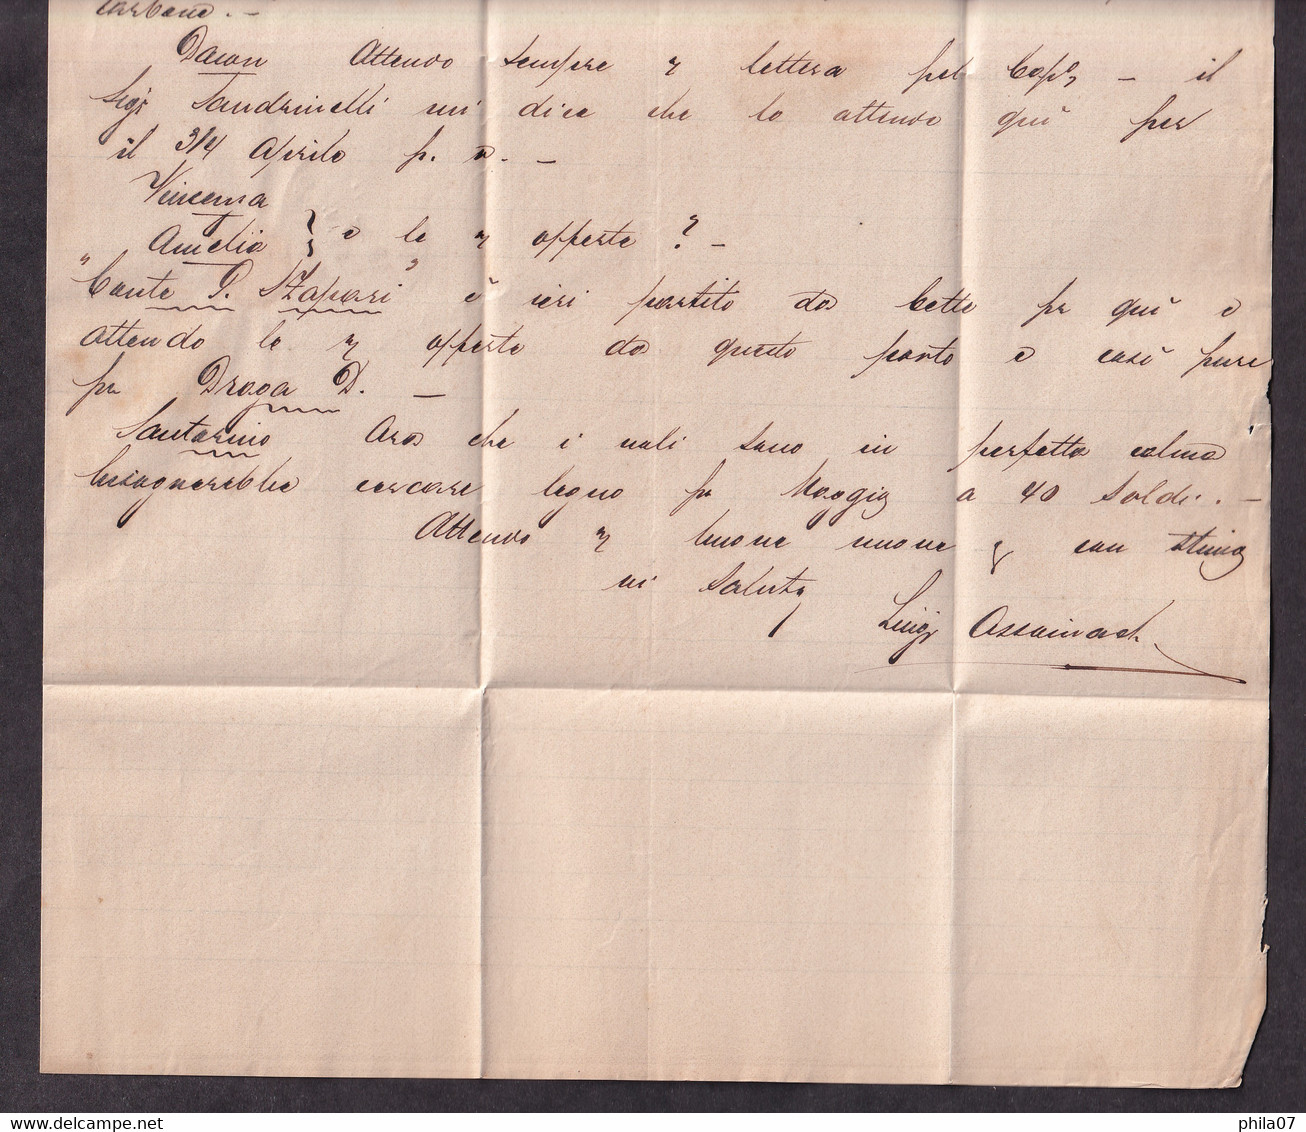 carbone. —
Dacon Attendo sempre vs lettera pel Cap° — il
Sigr Sandrinelli mi dice che lo attende quì per
il 3/4 Aprile p. v. —
Vincenza
Amelia } e le vs offerte ? —
"Conte G. Szapari" è ieri partito da Cette pr quì e
attendo le vs offerte da questo porto e così pure
pr Draga D. —
Santorino Ora che i noli sono in perfetta calma
bisognerebbe cercare legno pr Maggio a 40 soldi. —
Attendo vs buone nuove e con stima
vi saluto
Luigi
delcampe.net
phila07